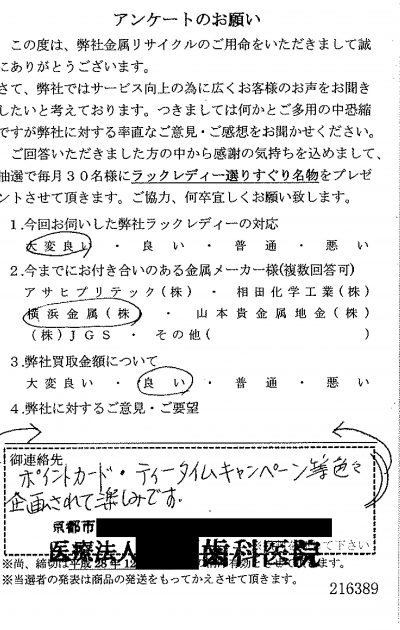 アンケートのお願い
この度は、弊社金属リサイクルのご用命をいただきまして誠
にありがとうございます。
さて、弊社ではサービス向上の為に広くお客様のお声をお聞き
したいと考えております。つきましては何かとご多用の中恐縮
ですが弊社に対する率直なご意見・ご感想をお聞かせください。
ご回答いただきました方の中から感謝の気持ちを込めまして、
抽選で毎月30名様にラックレディー選りすぐり名物をプレゼ
ントさせて頂きます。ご協力、何卒宜しくお願い致します。
1.今回お伺いした弊社ラックレディーの対応
大変良い ・ 良い ・ 普通 ・ 悪い
2.今までにお付き合いのある金属メーカー様(複数回答可)
アサヒプリテック(株) ・ 相田化学工業(株)
横浜金属(株) ・ 山本貴金属地金(株)
(株)JGS ・ その他( )
3.弊社買取金額について
大変良い ・ 良い ・ 普通 ・ 悪い
4.弊社に対するご意見・ご要望
御連絡先
ポイントカード・ティータイムキャンペーン等色々
企画されて楽しみです。
京都市
医療法人 歯科医院
て下さい
※尚、締切は平成28年12 有効とさせて頂きます。
※当選者の発表は商品の発送をもってかえさせて頂きます。
216389